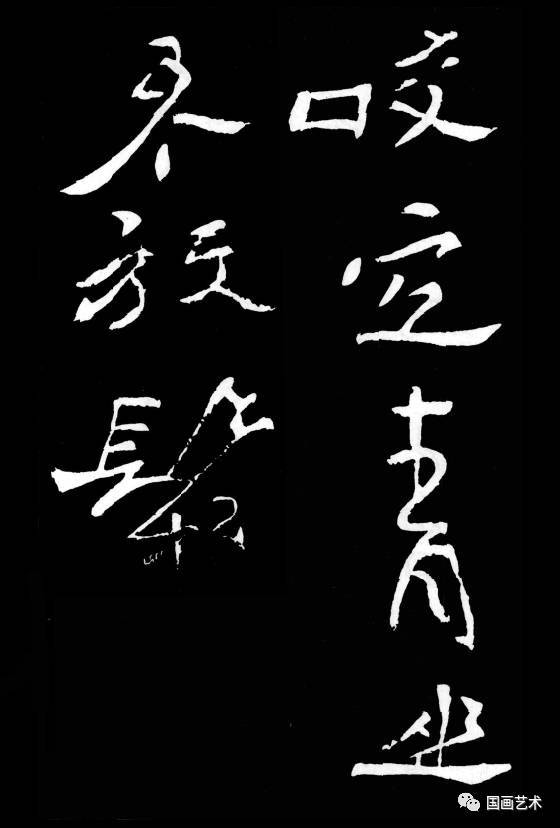 咬定青山
不放鬆
国画艺术